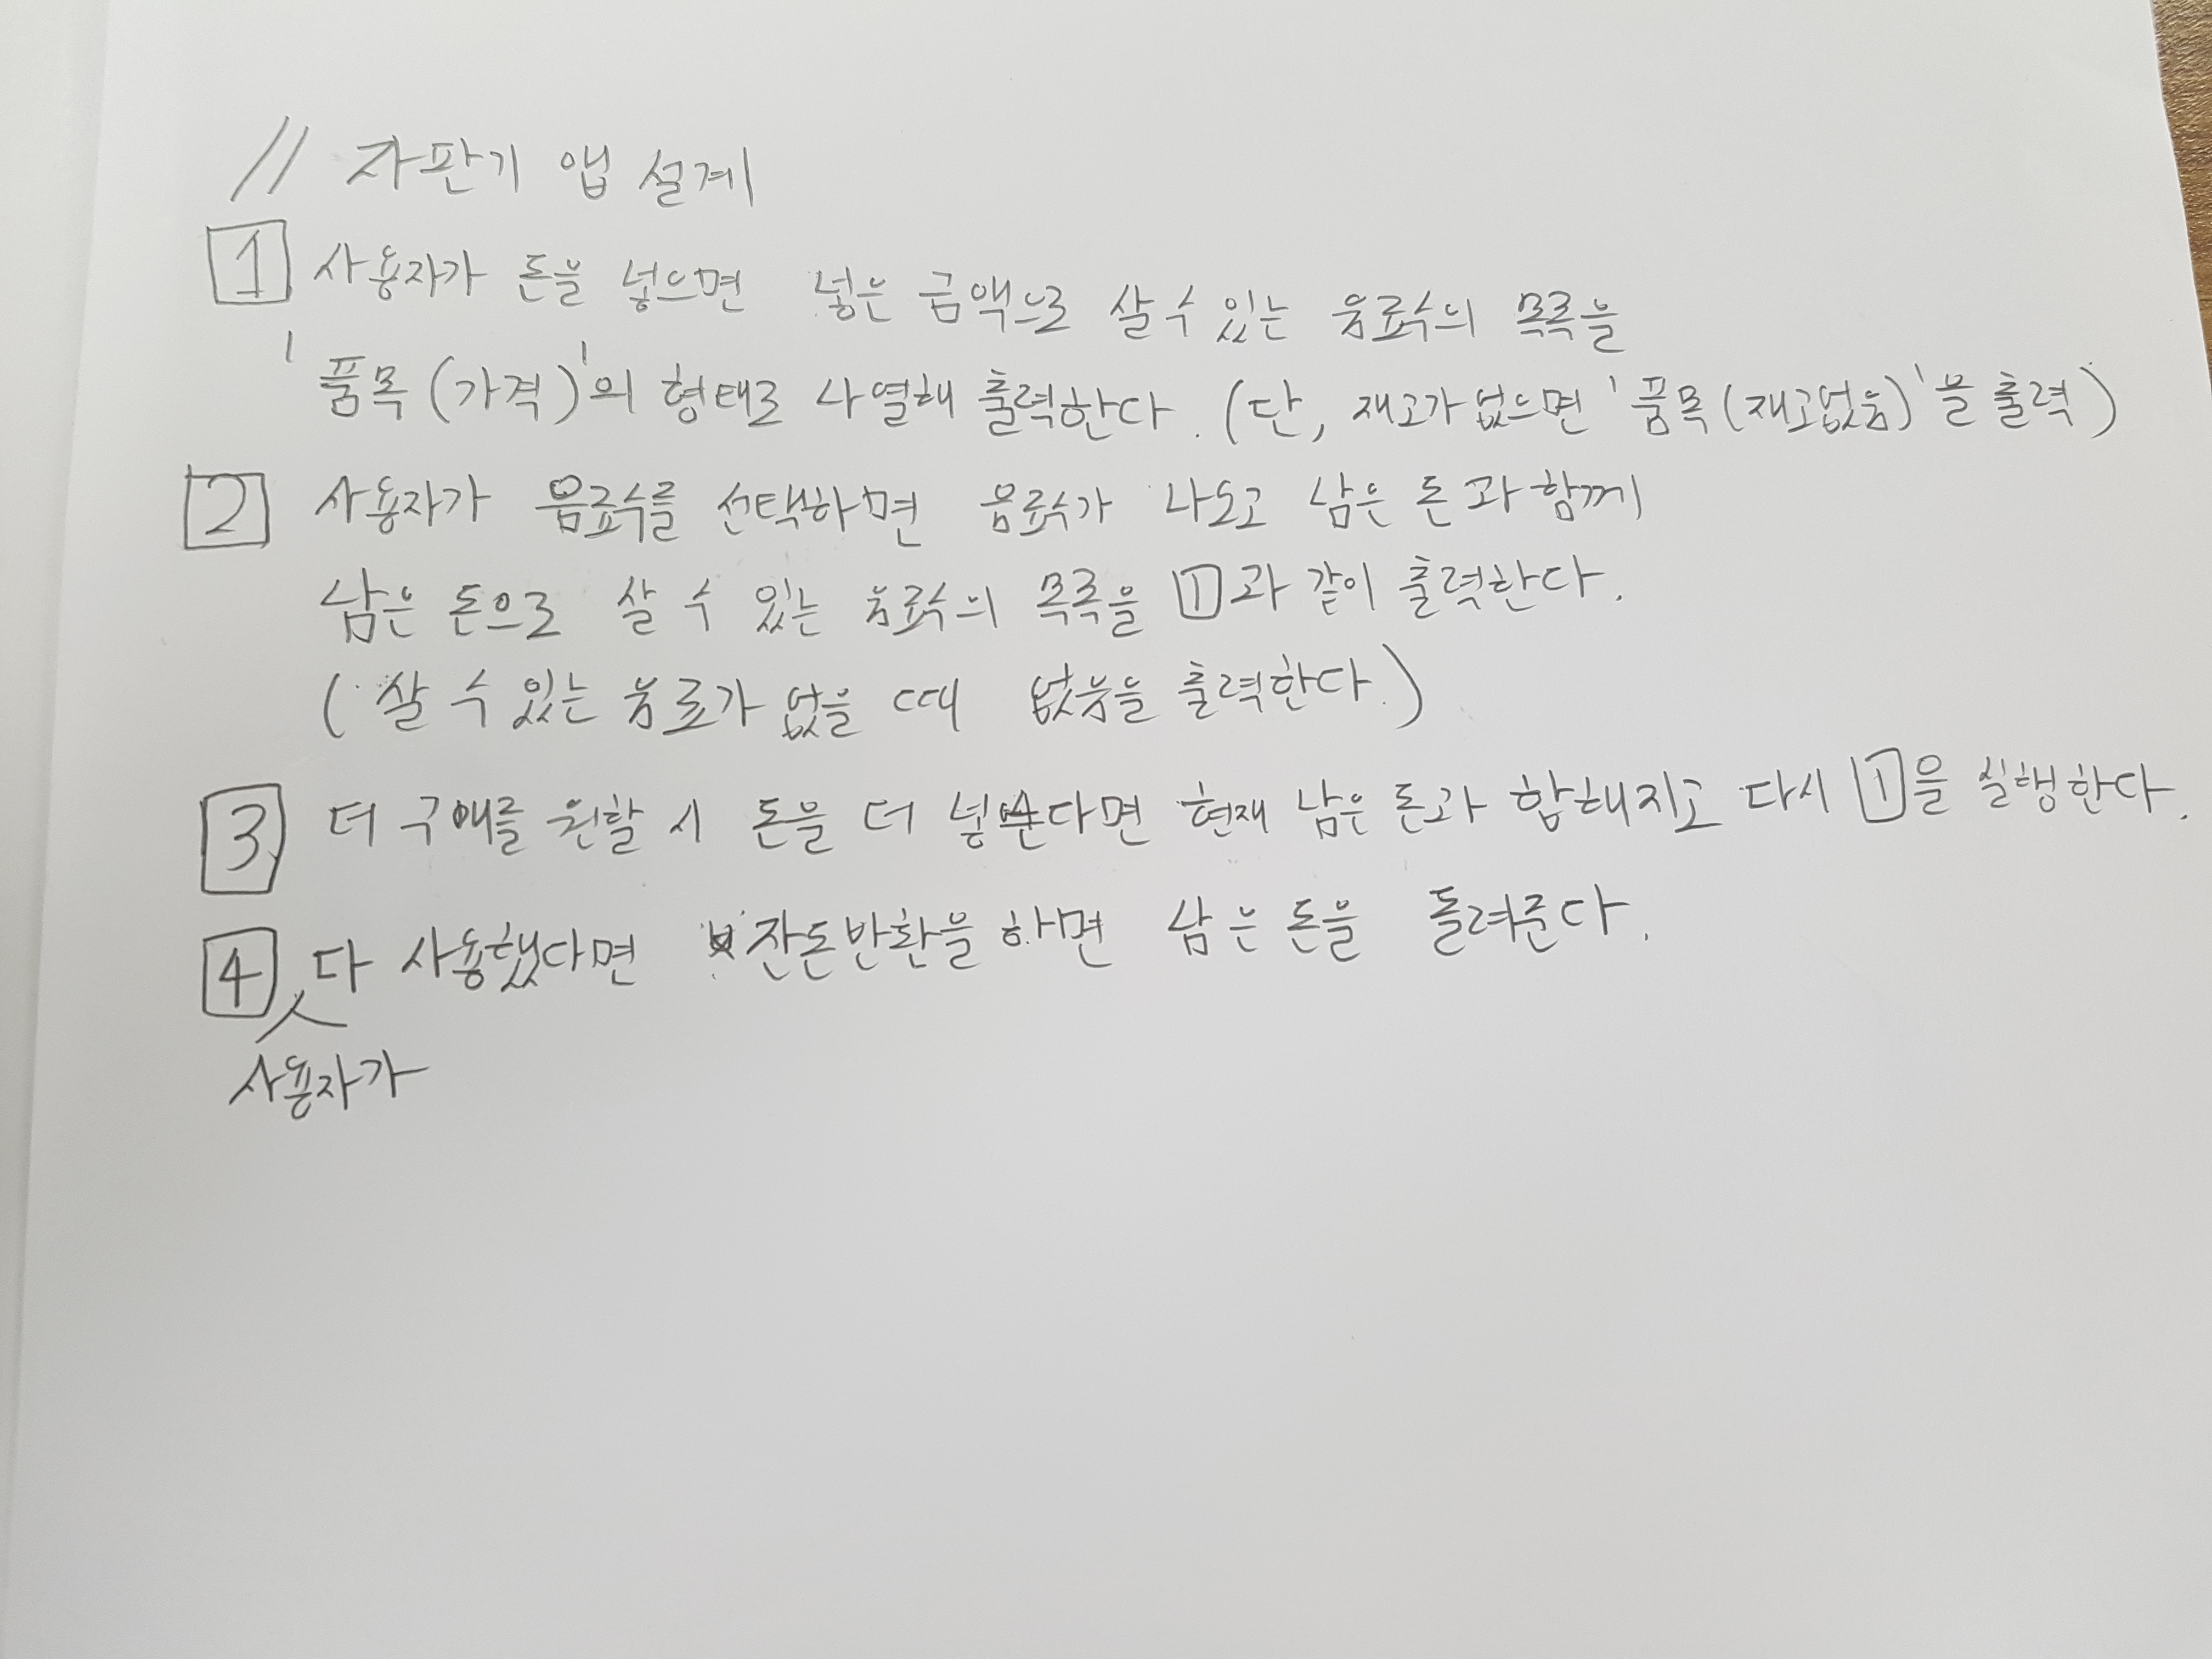 // 자판기 앱 설계
1 사용자가 돈을 넣으면 넣은 금액으로 살 수 있는 음료수의 목록을
'품목(가격)'의 형태로 나열해 출력한다. (단, 재고가 없으면 '품목(재고없음)'을 출력)
2 사용자가 음료수를 선택하면 음료수가 나오고 남은 돈과 함께
남은 돈으로 살 수 있는 음료수의 목록을 1과 같이 출력한다.
(살 수 있는 음료가 없을 때 없음을 출력한다.)
3 더 구매를 원할 시 돈을 더 넣는다면 현재 남은 돈과 합해지고 다시 1을 실행한다.
4 사용자가 다 사용했다면 잔돈반환을 하면 남은 돈을 돌려준다.